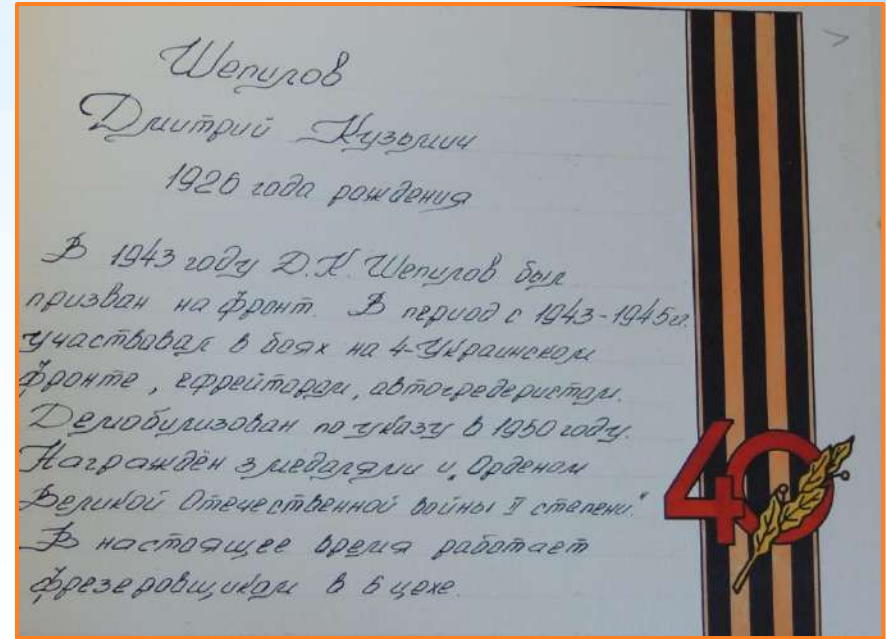 Шепилов
Дмитрий Кузьмич
1926 года рождения
В 1943 году Д.К. Шепилов был
призван на фронт. В период с 1943-1945гг.
участвовал в боях на 4-Украинском
фронте, ефрейтором, автогредеристом.
Демобилизован по указу в 1950 году.
Награждён 3 медалями и „Орденом
Великой Отечественной войны II степени."
В настоящее время работает
фрезеровщиком в 6 цехе.
40